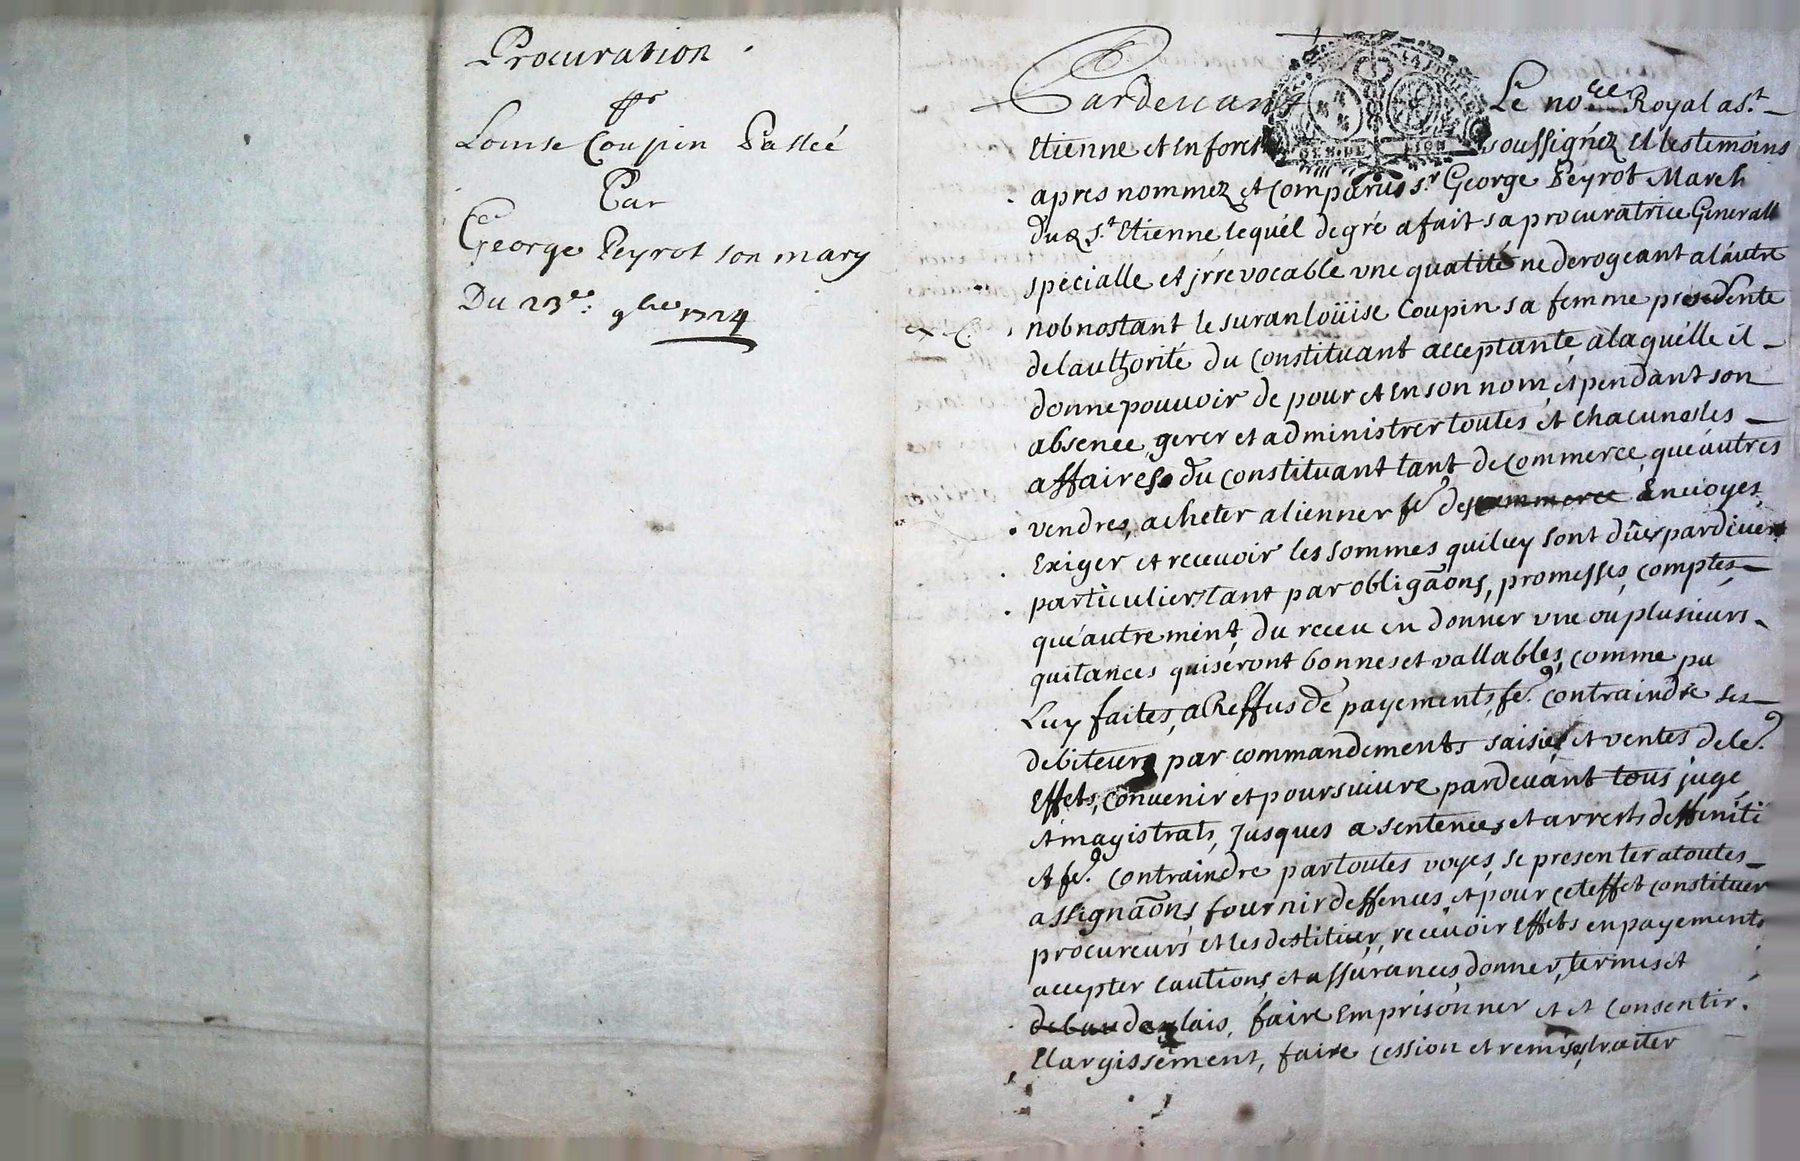 Procuration
ffe
Louise Coupin Passée
Par
George Peyrot son mary
Du 23e: 9bre 1724
Pardevant Le nore Royal a St
Etienne et en forest soussignez Et les temoins
apres nommez et comparus Sr George Peyrot March
dud St Etienne lequel de gré a fait sa procuratrice Generalle
specialle et jrrevocable vne qualité ne derogeant a lautre
nobnostant le suran loüise Coupin sa femme presente
de lauthorité du Constituant acceptante, a laquelle il
donne pouvoir de pour et En son nom et pendant son
absence, gerer et administrer toutes et chacunes les
affaires du constituant tant de Commerce, que autres
vendres, acheter alienner fe. des commerce Envoyes,
Exiger et recevoir les sommes qui luy sont dües par divers
particuliers tant par obligãons, promesses, comptes
que autrement, du receu en donner vne ou plusieurs
quitances qui seront bonnes et vallables, comme pa
Luy faites, a Reffus de payements, fe. contraindre ses
debiteurs par commandements saisies et ventes de le.
Effets, convenir et poursuivre pardevant tous juge
et magistrats, Jusques a sentences et arrests deffeniti
et fe. contraindre par toutes voyes, se presenter a toutes
assignãons fournir deffences et pour cet effet constituer
procureurs et les destituer, recevoir Effets en payements
accepter cautions, et assurances donner, termes et
delais, faire Emprisonner et et consentir
Elargissement, faire cession et remise, traiter